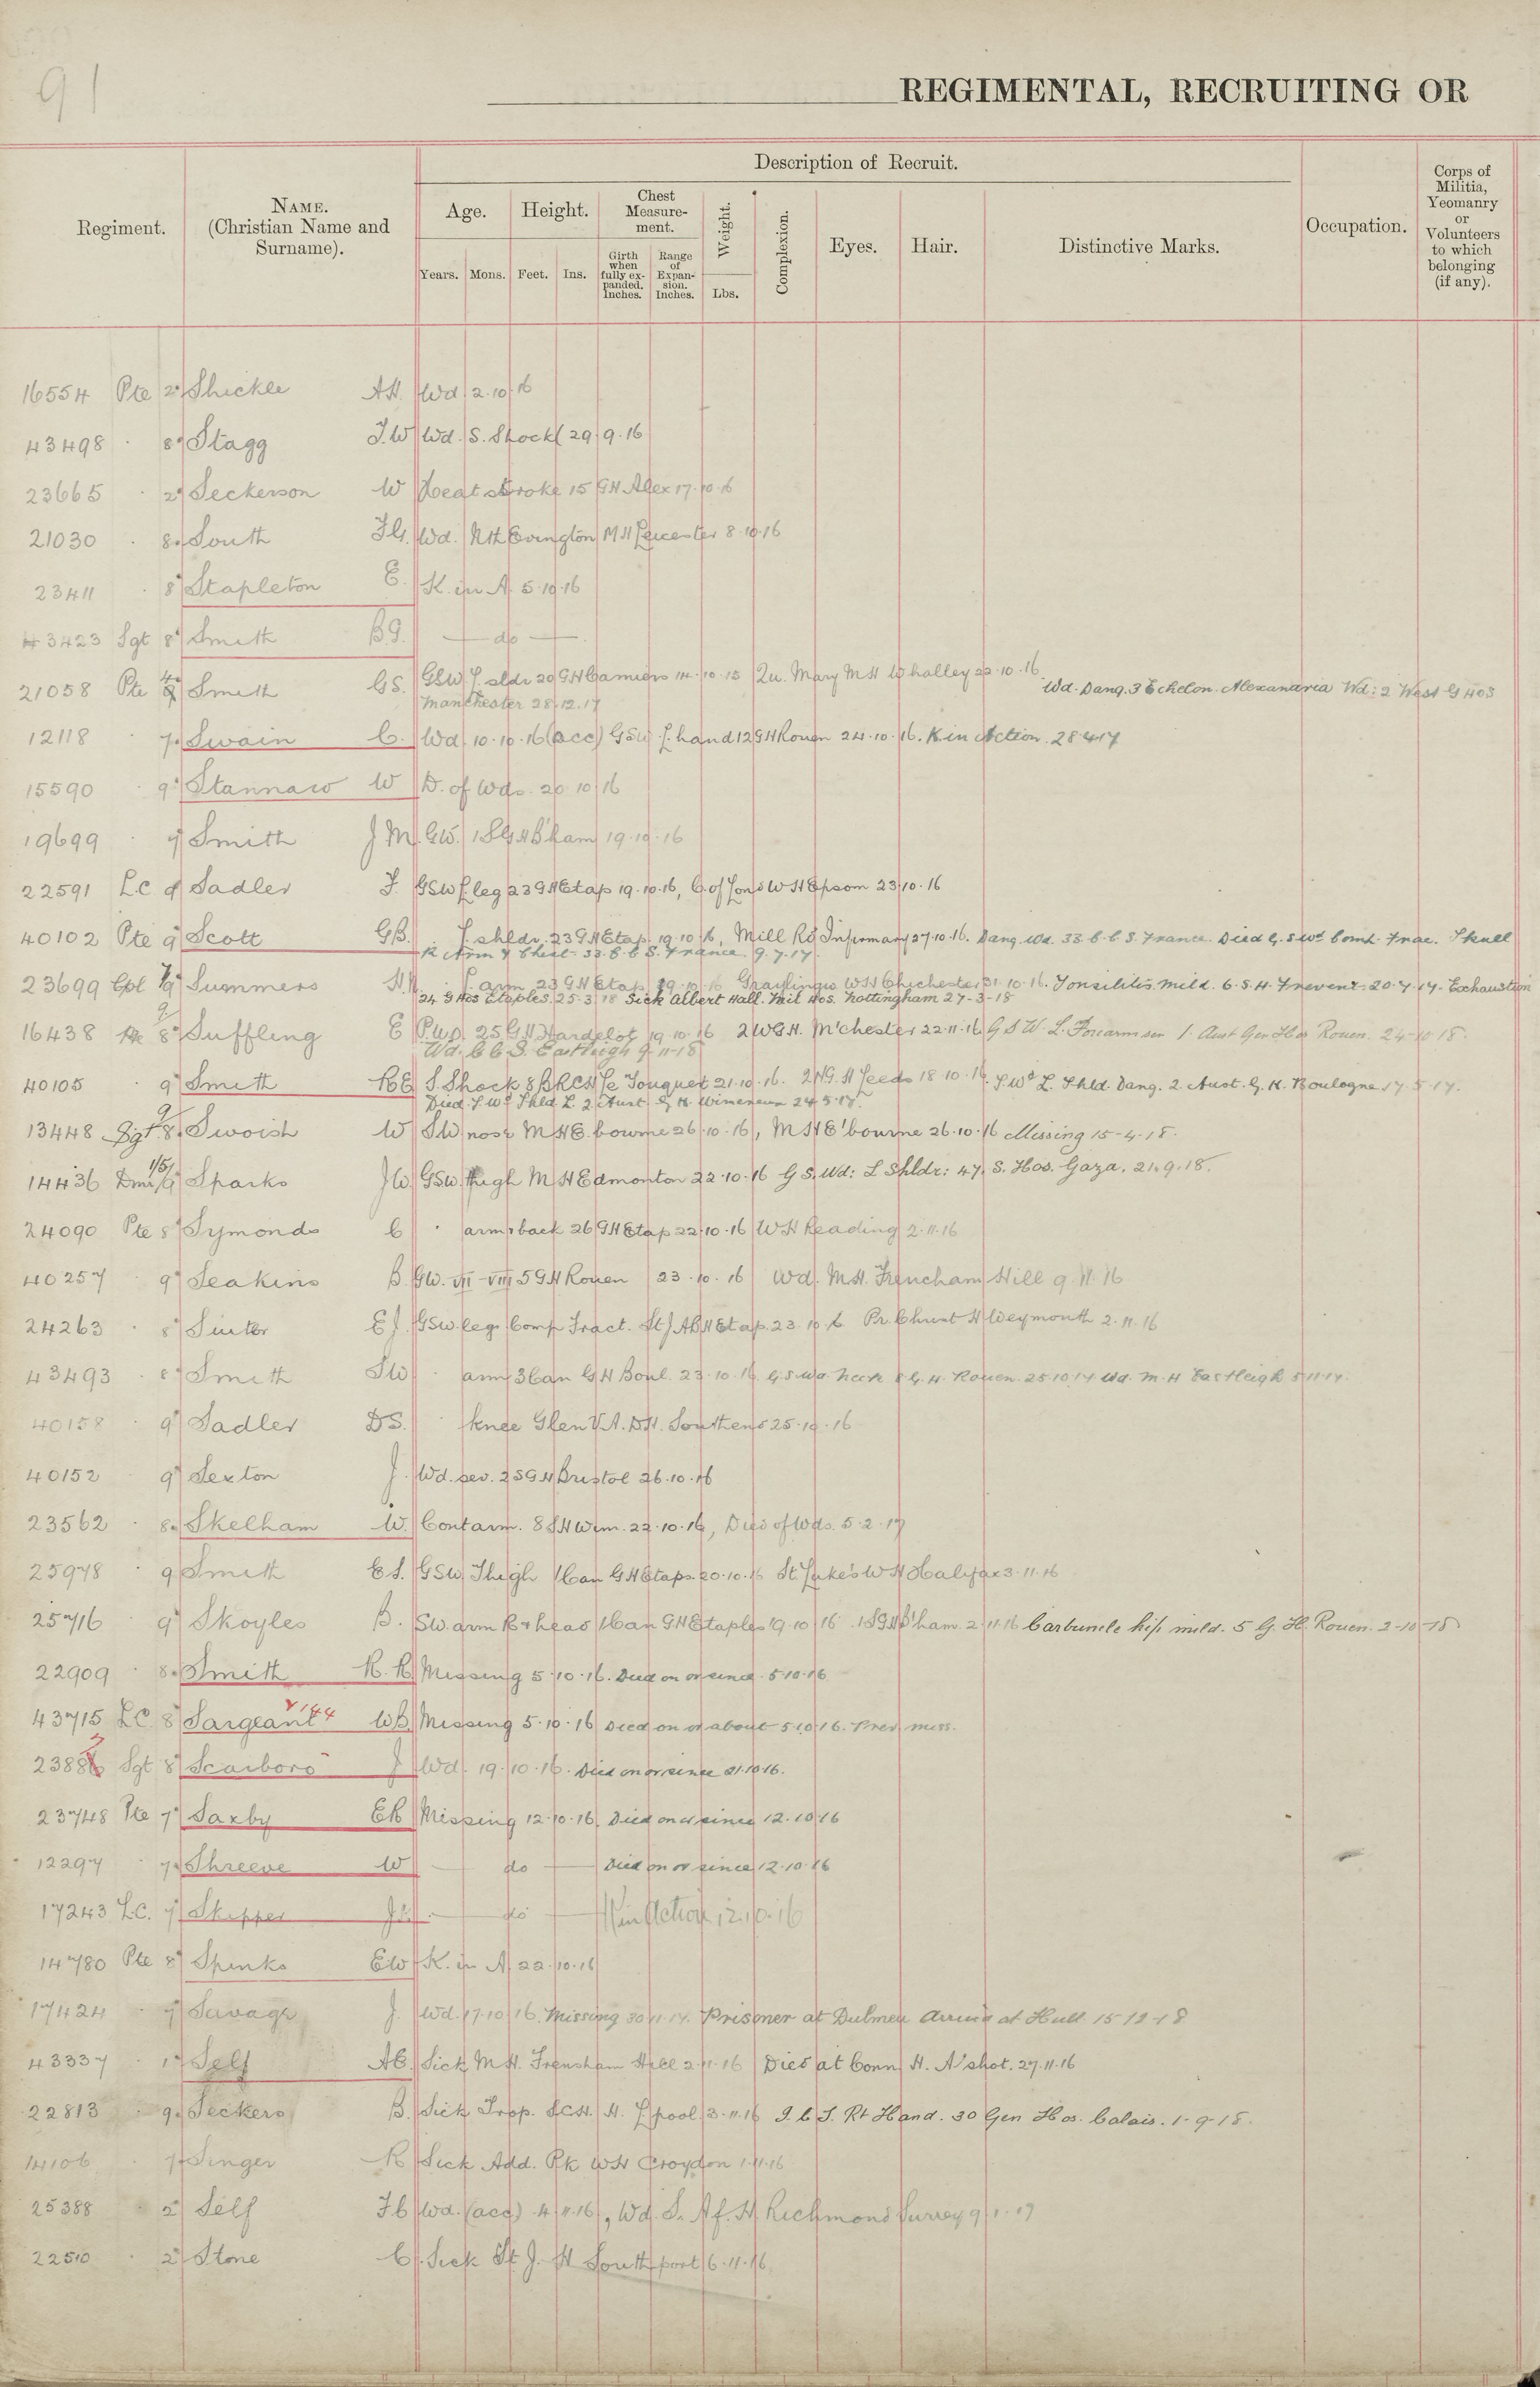 91
REGIMENTAL, RECRUITING OR
Regiment.
NAME.
(Christian Name and
Surname).
Description of Recruit.
Age.
Height.
Chest
Measure-
ment.
Weight.
Complexion.
Eyes.
Hair.
Distinctive Marks.
Occupation.
Corps of
Militia,
Yeomanry
or
Volunteers
to which
belonging
(if any).
Years.
Mons.
Feet.
Ins.
Girth
when
fully ex-
panded.
Inches.
Range
of
Expan-
sion.
Inches.
Lbs.
16554 Pte 2" Shickle A.H. Wd. 2.10.16
43498 " 8" Stagg J.W Wd. S. Shock 29.9.16
23665 " 2" Seckerson W Heat stroke 15 GH Alex 17.10.16
21030 " 8" South F.G. Wd. Nth Evington MH Leicester 8.10.16
23411 " 8" Stapleton E. K. in A. 5.10.16
43423 Sgt 8" Smith B.G. — do —
21058 Pte Smith G.S. GSW. L. sldr 20 GH Camiers 14.10.15 Qu. Mary M H Whalley 22.10.16 Wd. Dang. 3 Echelon. Alexandria Wd: 2 West G Hos
Manchester 28.12.17
12118 " 7" Swain C. Wd. 10.10.16 (acc) GSW L. hand 12 GH Rouen 24.10.16. K in Action. 28.4.17
15590 " 9" Stannard W D. of Wds. 20.10.16
19699 " 7" Smith J M. GW. 1 SGH B'ham 19.10.16
22591 L.C 9" Sadler F. GSW L leg 23 GH Etap 19.10.16, C. of Lond W H Epsom 23.10.16
40102 Pte 9" Scott GB. " L. shldr. 23 GH Etap. 19.10.16, Mill Rd Infirmary 27.10.16. Dang. Wd. 33 C.C.S. France. Died G.S Wd Comp. Frac. Skull
R Arm & Chest 33. C.C.S. France. 9.7.17.
23699 Cpl Summers H. " L. arm 23 GH Etap. 19.10.16 Graylingw WH Chichester 31.10.16. Tonsilitis mild. 6.S.H. Frevent. 20.7.17. Exhaustion
24 G Hos Etaples. 25.3.18 Sick Albert Hall. Mil Hos. Nottingham 27-3-18
16438 8" Suffling E P.U.O. 25 GH Hardelot 19.10.16 2 WGH. M'chester 22.11.16 G S W. L. Forearm sev 1. Aust Gen Hos Rouen. 24-10-18.
Wd. C.C.S. Eastleigh 9-11-18
40105 " 9" Smith R.E S. Shock 8 BRCS Le Touquet 21.10.16. 2 NG.H Leeds 18.10.16. S.Wd L. Shld. Dang. 2 Aust. G. H. Boulogne 17.5.17.
Died S Wd Shld L. 2 Aust G H. Wimereux 24.5.17.
13448 Sgt 8. Swoish W SW nose MH E. bourne 26.10.16, MH E'bourne 26.10.16 Missing 15-4-18.
14436 Dmr 1/5 Sparks J W. GSW thigh M H Edmonton 22.10.16 G S. Wd: L Shldr: 47. S. Hos. Gaza. 21.9.18.
24090 Pte 8" Symonds C " arm & back 26 GH Etap 22.10.16 WH Reading 2.11.16
40257 " 9" Seakins B. GW. VII-VIII 5 GH Rouen 23.10.16 Wd. M.H. Frencham Hill 9.11.16
24263 " 8" Suiter E J. GSW legs Comp Fract. St J AB H Etap. 23.10.16 Pr. Christ H Weymouth 2.11.16
43493 " 8" Smith SW " arm 3 Can GH Boul. 23.10.16 G.S. Wd. Neck 8 G.H. Rouen 25.10.17 Wd. M. H Eastleigh 5.11.17.
40158 " 9" Sadler DS. " knee Glen V.A.D.H. Southend 25.10.16
40152 " 9" Sexton J. Wd. sev. 2 SGH Bristol 26.10.16
23562 " 8" Skelham W. Cont arm. 8 SH Wim. 22.10.16, Died of Wds. 5.2.17
25978 " 9 Smith E S. GSW Thigh 1 Can GH Etaps. 20.10.16 St. Luke's W H Halifax 3.11.16
25716 " 9" Skoyles B. SW. arm R & head 1 Can GH Etaples 19.10.16 1 SGH B'ham. 2.11.16 Carbuncle hip mild. 5 G. H. Rouen. 2-10-18
22909 " 8" Smith R. R. Missing 5.10.16. Died on or since 5.10.16
43715 L.C. 8" Sargeant WB. Missing 5.10.16 Died on or about 5.10.16. Prev. miss.
2388 Sgt 8" Scarboro J Wd. 19.10.16. Died on or since 21.10.16.
23748 Pte 7" Saxby ER Missing 12.10.16. Died on or since 12.10.16
12297 " 7" Shreeve W — do — Died on or since 12.10.16
17243 L.C. 7" Skipper — do — K in Action 12.10.16
14780 Pte 8" Spinks EW K. in A. 22.10.16
17424 " 7" Savage J. Wd. 17.10.16. Missing 30.11.17. Prisoner at Dulmen Arrived at Hull 15-12-18
43337 " 1" Self AC. Sick M.H. Frensham Hill 2.11.16 Died at Conn. H. A'shot. 27.11.16
22813 " 9" Seckers B. Sick Trop. H. L'pool 3.11.16 I.C.T. Rt Hand. 30 Gen Hos. Calais. 1-9-18.
14106 " 7" Singer R Sick Add. Pk WH Croydon 1.11.16
25388 " 2" Self F C Wd. (acc) 4.11.16, Wd. S. Af. H Richmond Surrey 9.1.17
22510 " 2" Stone C. Sick St. J. H Southport 6.11.16.